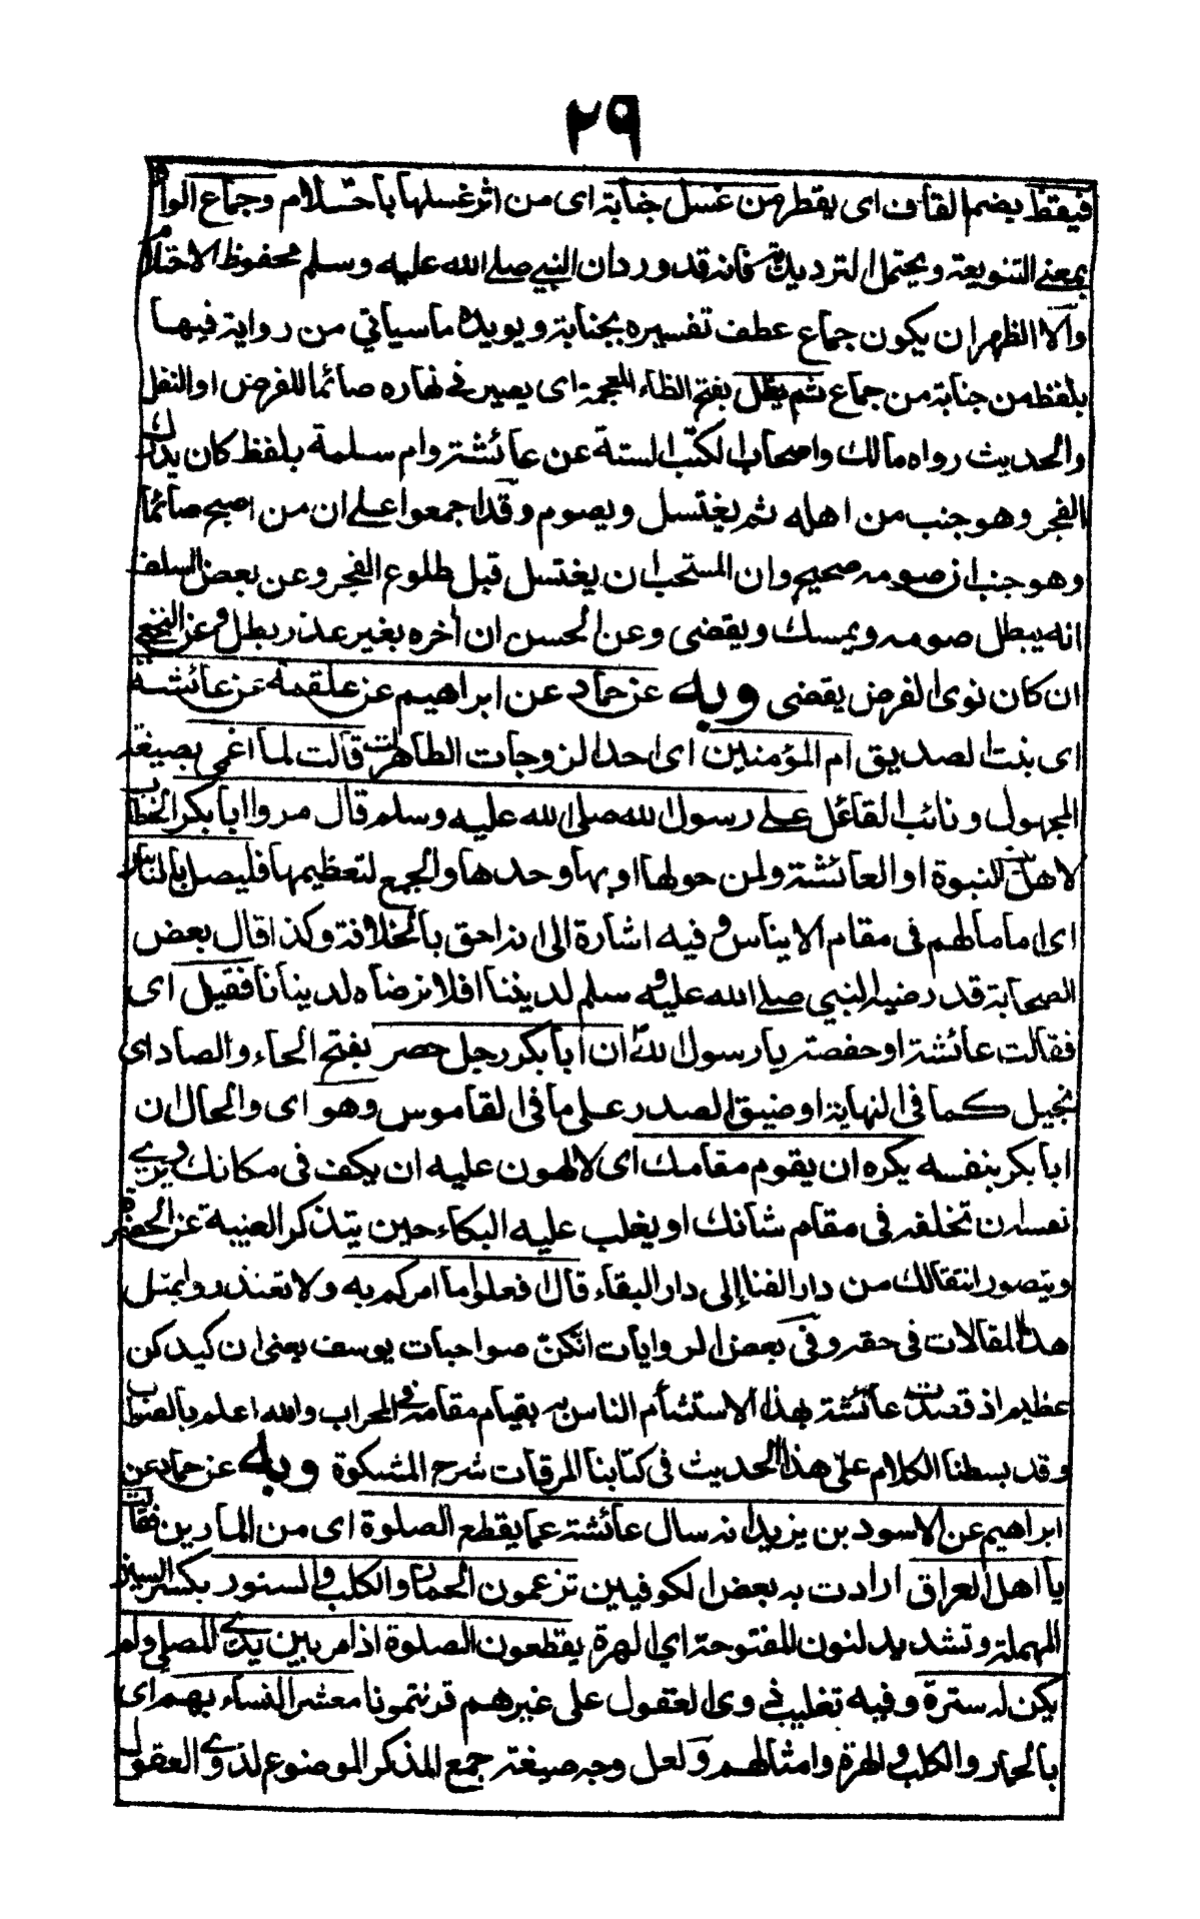 ٢٩
فيقطر بضم القاف اى يقطر من غسل جنابة اى من اثر غسلها باحتلام وجماع الواو
بمعنى التنويعة ويحتمل الترديدية فانه قد ورد ان النبي صلى الله عليه وسلم محفوظ الاحتلام
والاظهر ان يكون جماع عطف تفسيره بجنابة ويويده ما سياتي من رواية فيها
بلفظ من جنابة من جماع ثم يظل بفتح الظاء المعجمة اى يصير فى نهاره صائما للفرض او النفل
والحديث رواه مالك واصحاب الكتب الستة عن عائشة وام سلمة بلفظ كان يدركه
الفجر وهو جنب من اهله ثم يغتسل ويصوم وقد اجمعوا على ان من اصبح صائما
وهو جنب ان صومه صحيح وان المستحب ان يغتسل قبل طلوع الفجر وعن بعض السلف
انه يبطل صومه ويمسك ويقضى وعن الحسن ان أخره بغير عذر بطل وعن النخعي
ان كان نوى الفرض يقضى وبه عن حماد عن ابراهيم عن علقمة عن عائشة
اى بنت الصديق ام المؤمنين اى احد الزوجات الطاهرات قالت لما اغمى بصيغة
المجهول ونائب القائل على رسول الله صلى الله عليه وسلم قال مروا ابا بكر الخطاب
لاهل النبوة او العائشة ولمن حولها او بها وحدها والجمع لتعظيمها فليصل بالناس
اى اماما لهم فى مقام الايناس وفيه اشارة الى انه احق بالخلافة وكذا قال بعض
الصحابة قد رضيه النبي صلى الله عليه وسلم لديننا افلا نرضاه لدينانا فقيل اى
فقالت عائشة او حفصة يا رسول الله ان أبا بكر رجل حصر بفتح الحاء والصاد اى
بخيل كما فى النهاية او ضيق الصدر على ما فى القاموس وهو اى والحال ان
ابا بكر بنفسه يكره ان يقوم مقامك اى لا لهون عليه ان يكف فى مكانك ويرى
نفسه ان تخلفه فى مقام شانك او يغلب عليه البكاء حين يتذكر الغيبة عن الحضرة
ويتصور انتقالك من دار الفنا إلى دار البقاء قال فعلوا ما امركم به ولا تعتذروا بمثل
هذا المقالات فى حقه وفى بعض الروايات انكن صواحبات يوسف يعنى ان كيدكن
عظيم اذ قصدت عائشة بهذا الاستشأم الناس به بقيام مقامه فى المحراب والله اعلم بالصواب
وقد بسطنا الكلام على هذا الحديث فى كتابنا المرقات شرح المشكوة وبه عن حماد عن
ابراهيم عن الاسود بن يزيد انه سال عائشة عما يقطع الصلوة اى من المارين فقالت
يا اهل العراق ارادت به بعض الكوفيين تزعمون الحمار والكلب والسنور بكسر السين
المهملة وتشديد لنون المفتوحة اي الهرة يقطعون الصلوة اذا مر بين يدى المصلي ولم
يكن له سترة وفيه تغليب ذوى العقول على غيرهم قرنتمونا معشر النساء بهم اى
بالحمار والكلب والهرة وامثالهم ولعل وجه صيغة جمع المذكر الموضوع لذوى العقول